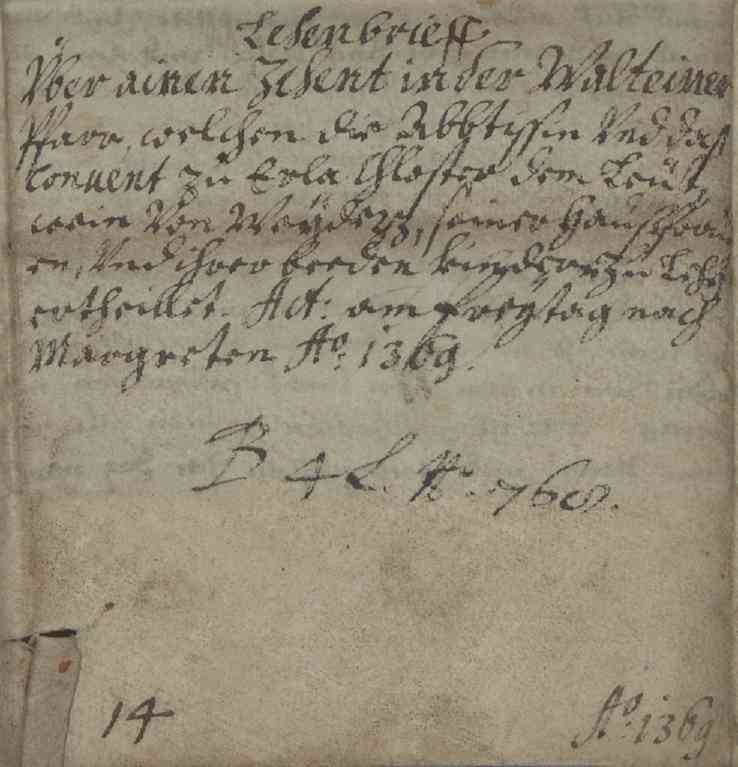 Lehenbrieff
Über ainen Zehent in der Walteiner
Pfarr, welchen die Abbtissin Vnd das
Conuent zu Erla Closter dem Leut,
wein Von Weyderz, seiner Haussfrau
en, Vnd ihren beeden kindern zu Lehen
ertheillet. Act: am Freytag nach
Margreten Aõ: 1369.
B 4 L. N: 768.
14
Aõ: 1369